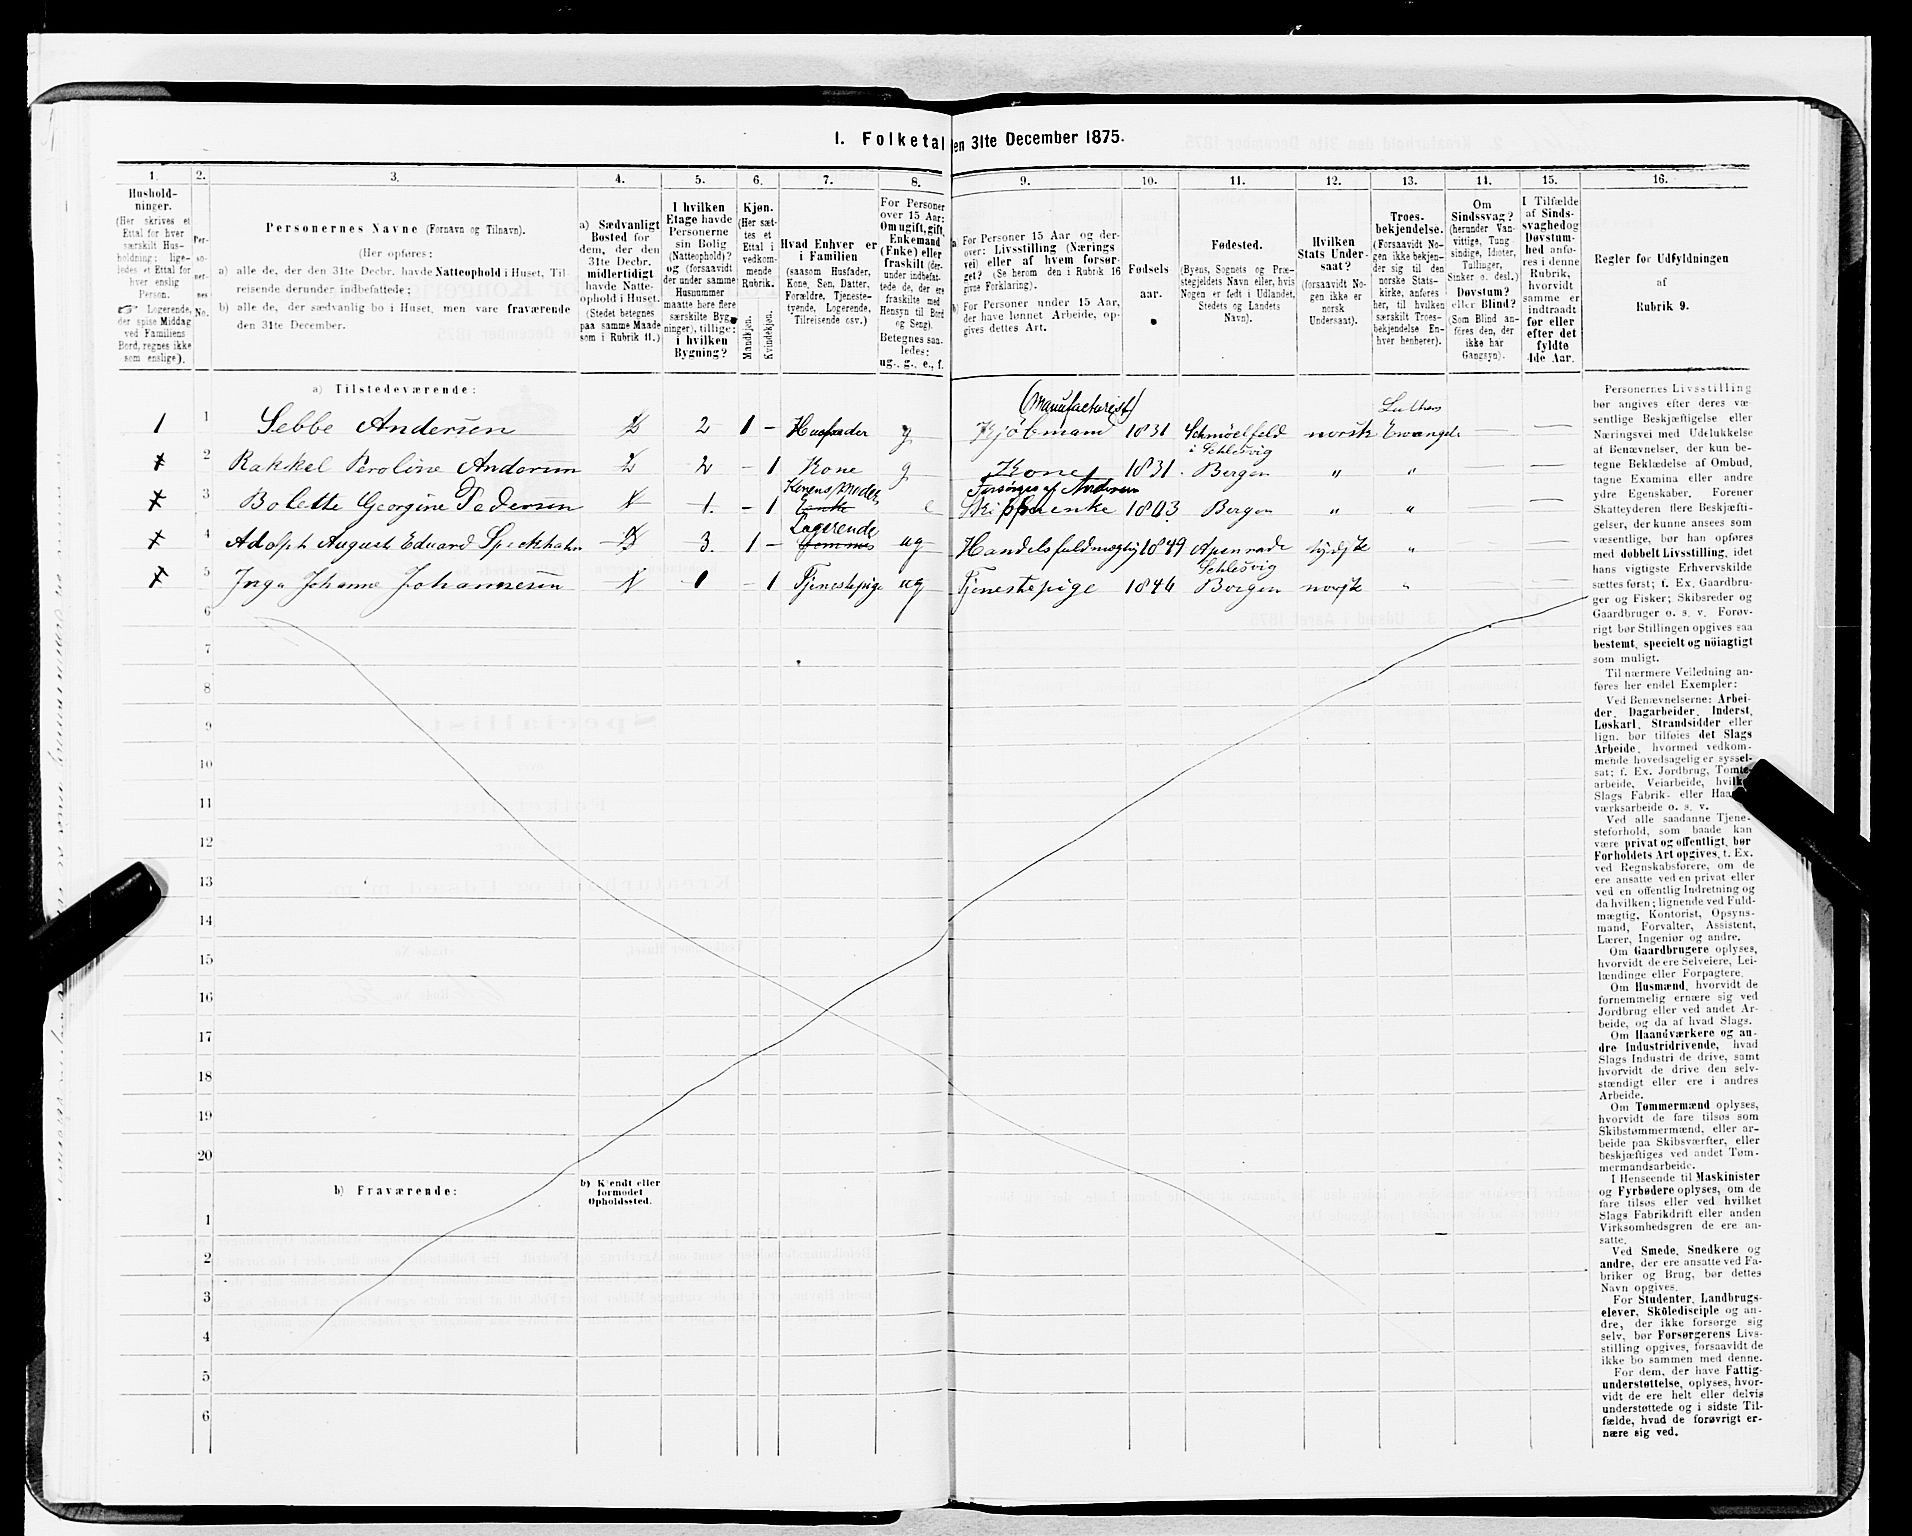 1. Folketal
en 31te December 1875.
1. 2. 3. 4. 5. 6. 7. 8. 9. 10. 11. 12. 13. 14. 15. 16.
Hushold-
ninger.
(Her skrives et
Ettal for hver
særskilt Hus-
holdning; lige-
ledes et Ettal for
hver enslig
Person.
Logerende,
der spise Middag
ved Familiens
Bord, regnes ikke
som enslige).
Per-
so-
ner-
nes
No.
Personernes Navne (Fornavn og Tilnavn).
(Her opføres:
a) alle de, der den 31te Decbr. havde Natteophold i Huset, Til-
reisende derunder indbefattede;
b) alle de, der sædvanlig bo i Huset, men vare fraværende
den 31te December.
a) Sædvanligt
Bosted for
dem, der den
31te Decbr.
midlertidigt
havde Natte-
ophold i Huset.
(Stedet betegnes
paa samme Maade
som i Rubrik 11.)
I hvilken
Etage havde
Personerne
sin Bolig
(Natteophold)?
og (forsaavidt
der under samme
Husnummer
maatte høre flere
særskilte Byg-
ninger), tillige:
i hvilken
Bygning?
Kjøn.
(Her sæt-
tes et
Ettal i
vedkom-
mende
Rubrik.
Mandkjøn.
Kvindekjøn.
Hvad Enhver er
i Familien
(saasom Husfader,
Kone, Søn, Datter,
Forældre, Tjeneste-
tyende, Logerende,
Tilreisende osv.)
For Personer
over 15 Aar:
Om ugift, gift,
Enkemand
(Enke) eller
fraskilt (der-
under indbefat-
tede de, der ere
fraskilte med
Hensyn til Bord
og Seng).
Betegnes saa-
ledes:
ug., g., e., f.
a For Personer 15 Aar og der-
over: Livsstilling (Nærings
vei) eller af hvem forsør-
get? (Se herom den i Rubrik 16
givne Forklaring).
b) For Personer under 15 Aar,
der have lønnet Arbeide, op-
gives dettes Art.
Fødsels
aar.
Fødested.
(Byens, Sognets og Præ-
stegjeldets Navn eller, hvis
Nogen er født i Udlandet,
Stedets og Landets
Navn).
Hvilken
Stats Under-
saat?
(forsaavidt No-
gen ikke er
norsk
Undersaat).
Troes-
bekjendelse.
(Forsaavidt No-
gen ikke bekjen-
der sig til den
norske Stats-
kirke, anføres
her, til hvilken
særskilt Troes-
bekjendelse En-
hver henhører).
Om
Sindssvag?
(herunder Van-
vittige, Tung
sindige, Idioter,
Tullinger,
Sinker o. desl.)
Døvstum?
eller Blind?
(Som Blind an-
føres den, der
ikke har
Gangsyn).
I Tilfælde
af Sinds-
svaghed og
Døvstum-
hed anfø-
res i denne
Rubrik,
hvorvidt
samme er
indtraadt
før eller
efter det
fyldte
4de Aar.
Regler for Udfyldningen
af
Rubrik 9.
a) Tilstedeværende:
(Manufacturist)
Luthers
1 1 Sebbe Andersen 2 1 – Husfader g Kjøbmand 1831 Schmöelfeld norsk Ewangels
i Schlesvig
2 Rakkel Peroline Andersen 2 – 1 Kone g Kone 1831. Bergen " "
Konens Moder Forsørges af Andersen
3 Bolette Georgine Pedersen 1. – 1 Enke e Skipperenke 1803 Bergen " "
Logerende
4 Adolph August Eduard Speckhahn 3. 1 – ug Handelsfuldmægtig 1849 Apenrade tydsk "
Schlesvig
5 Inga Johanne Johannesen 1 – 1 Tjenestepige ug Tjenestepige 1846 Bergen norsk "
6
7
8
9
10
11
12
13
14
15
16
17
18
19
20
b) Fraværende:
b) Kjendt eller
formodet
Opholdssted.
1
2
3
4
5
6
Personernes Livsstilling
bør angives efter deres væ-
sentlige Beskjæftigelse eller
Næringsvei med Udelukkelse
af Benævnelser, der kun be-
tegne Beklædelse af Ombud,
tagne Examina eller andre
ydre Egenskaber. Forener
Skatteyderen flere Beskjæfti-
gelser, der kunne ansees som
væsentlige, bør han opføres
med dobbelt Livsstilling, idet
hans vigtigste Erhvervskilde
sættes først; f. Ex. Gaardbru-
ger og Fisker; Skibsreder og
Gaardbruger o. s. v. Forøv-
rigt bør Stillingen opgives saa
bestemt, specielt og nøiagtigt
som muligt.
Til nærmere Veiledning an-
føres her endel Exempler:
Ved Benævnelserne: Arbei-
der, Dagarbeider, Inderst,
Løskarl, Strandsidder eller
lign. bør tilføies det Slags
Arbeide, hvormed vedkom-
mende hovedsagelig er syssel-
sat; f. Ex. Jordbrug, Tomte-
arbeide, Veiarbeide, hvilket
Slags Fabrik- eller Haand-
værksarbeide o. s. v.
Ved alle saadanne Tjene-
steforhold, som baade kan
være privat og offentligt, bør
Forholdets Art opgives, t. Ex.
ved Regnskabsførere, om de
ere ansatte ved en privat eller
ved en offentlig Indretning og
da hvilken; lignende ved Fuld-
mægtig, Kontorist, Opsyns-
mand, Forvalter, Assistent,
Lærer, Ingeniør og andre.
Om Gaardbrugere oplyses,
hvorvidt de ere Selveiere, Lei-
lændinge eller Forpagtere.
Om Husmænd, hvorvidt de
fornemmelig ernære sig ved
Jordbrug eller ved andet Ar-
beide, og da af hvad Slags.
Om Haandværkere og an-
dre Industridrivende, hvad
Slags Industri de drive, samt
hvorvidt de drive den selv-
stændigt eller ere i andres
Arbeide.
Om Tømmermænd oplyses,
hvorvidt de fare tilsøs som
Skibstømmermænd, eller ar-
beide paa Skibsværfter, eller
beskjæftiges ved andet Tøm-
mermandsarbeide.
I Henseende til Maskinister
og Fyrbødere oplyses, om de
fare tilsøs eller ved hvilket
Slags Fabrikdrift eller anden
Virksomhedsgren de ere an-
satte.
Ved Smede, Snedkere og
andre, der ere ansatte ved Fa-
briker og Brug, bør dettes
Navn opgives.
For Studenter, Landbrugs-
elever, Skoledisciple og an-
dre, der ikke forsørge sig
selv, bør Forsørgerens Livs-
stilling opgives, forsaavidt de
ikke bo sammen med denne.
For dem, der have Fattig-
understøttelse, oplyses, hvor-
vidt de ere helt eller delvis
understøttede og i sidste Til-
fælde, hvad de forøvrigt er-
nære sig ved.